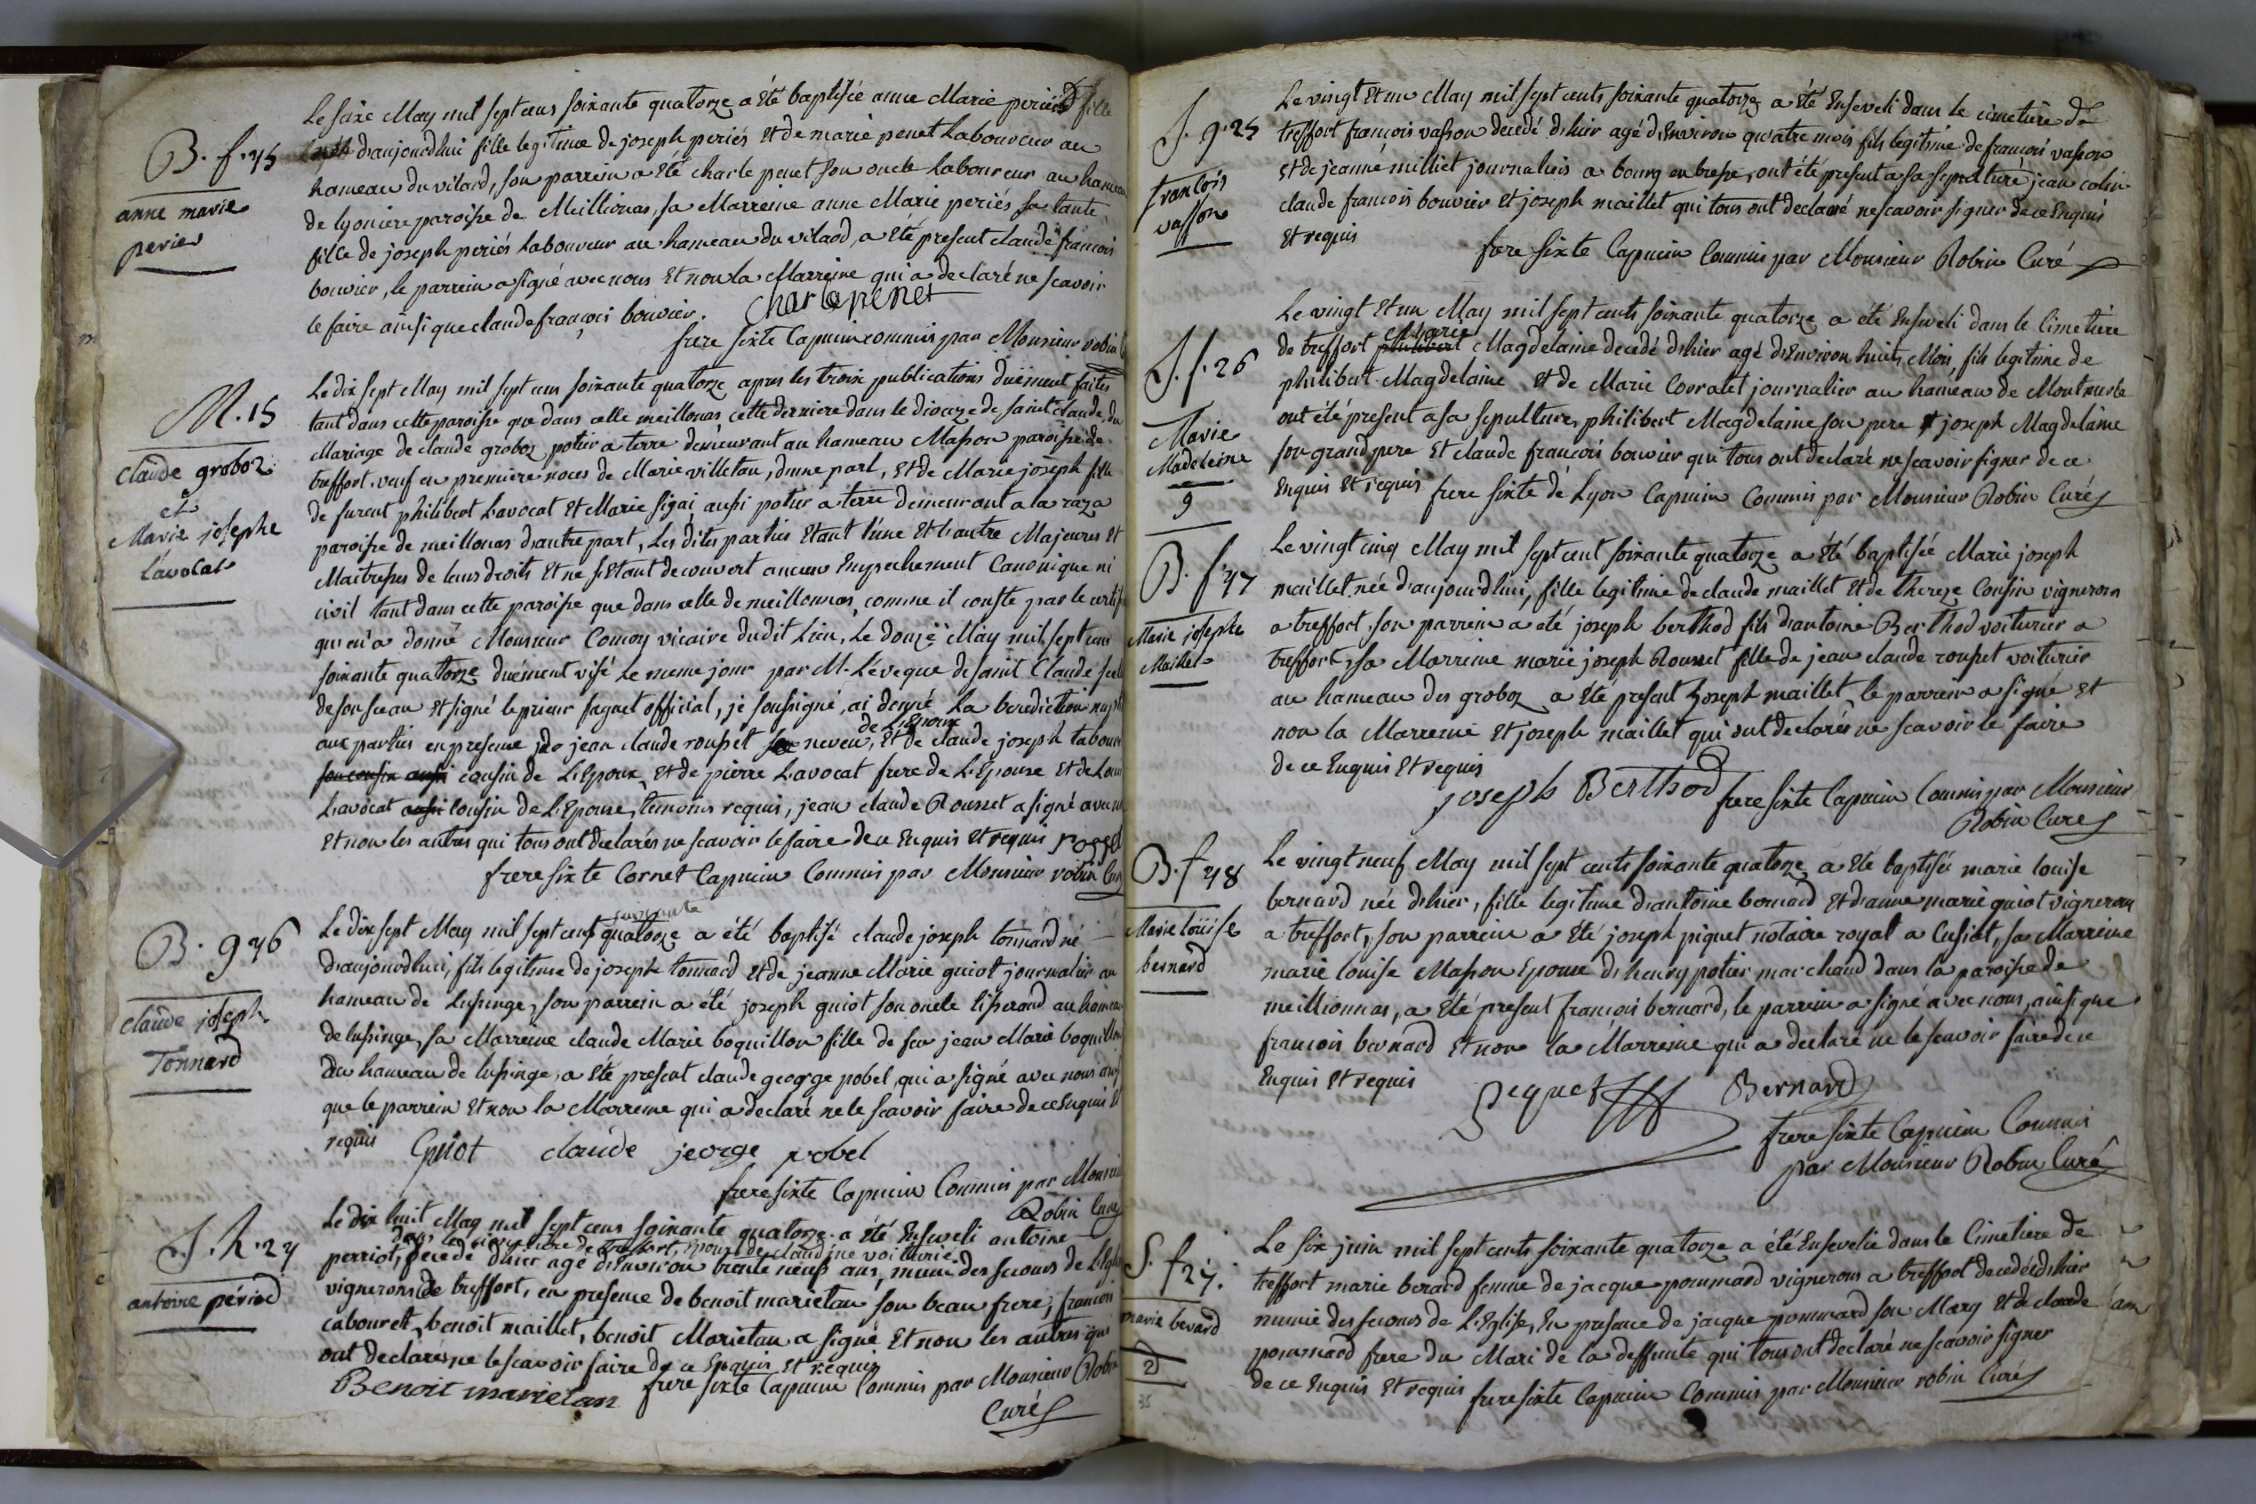 B. f. 45
anne marie
perier
Le seize May mil sept cens soixante quatorze a été baptisée anne Marie periés fille
née d'aujourd'hui fille legitime de joseph periés et de marie penet Laboureur au
hameau du vilard, son parrein a été charle penet son oncle Laboureur au hameau
de lyoniere paroisse de Meillionas, sa Marreine anne Marie periés sa tante
fille de joseph periés Laboureur au hameau du vilard, a été present claude francois
bouvier, le parrein a signé avec nous et non la Marreine qui a declaré ne scavoir
le faire ainsi que claude françois bouvier. Charle penet
frere sixte Capucin commis par Monsieur robin
M. 15
claude groboz
et
Marie josephe
l'avocat
Le dix sept May mil sept cens soixante quatorze apres les troix publications duëment faites
tant dans cette paroisse que dans celle meillonas cette derniere dans le diocéze de saint claude du
Mariage de claude groboz potier a terre demeurant au hameau Masson paroisse de
treffort veuf en premiere noces de Marie villetan, d'une part, et de Marie joseph fille
de furent philibert L'avocat et Marie sigai aussi potier a terre demeurant a la raza
paroisse de meillonas d'autre part, Les dites parties etant l'une et l'autre Majeures et
Maitresses de leurs droits et ne s'etant decouvert aucun Empechement Canonique ni
civil tant dans cette paroisse que dans celle de meillonnas, comme il conste par le certif
qu'en a donné Monsieur Comoy vicaire dudit Lieu, Le douze May mil sept cens
soixante quatorze duëment visé Le meme jour par M. L'éveque de saint Claude
de son sceau et signé le prieur faquet official, je soussigné, ai donné La benediction nupti
aux parties en presence de jean claude rousset son neveu de L'Epoux, et de claude joseph tabouret
son cousin aussi cousin de L'Epoux, et de pierre L'avocat frere de L'Epouse et de Louis
L'avocat aussi cousin de L'Epouse, temoins requis, jean claude Rousset a signé avec nous
et non les autres qui tous ont declarés ne scavoir le faire de ce Enquis et requis rosset
frere sixte Cornet Capucin Commis par Monsieur robin Curé
B. g 46
claude joseph
Tonnard
Le dix sept May mil sept cens soixante quatorze a été baptisé claude joseph tonnard né
d'aujourd'huci, fils legitime de joseph tonnard et de jeanne Marie guiot journalier au
hameau de Lusinge, son parrein a été joseph guiot son oncle tisserand au hameau
de lusinge, sa Marreine claude Marie boquillon fille de feu jean Marie boquillon
du hameau de lusinge, a été present claude george pobel, qui a signé avec nous ainsi
que le parrein et non la Marreine qui a declaré ne le scavoir faire de ce Enquis et
requis Guiot claude jeorge pobel
frere sixte Capucin Commis par Monsieur
Robin Curé
S. h. 24
antoine périod
Le dix huit May mil sept cens soixante quatorze a été Enseveli antoine
dans le cimetiere de treffort, Epoux de claudine voiturie
perriot, decedé d'hier agé d'Environ trente neuf ans, muni des secours de L'Eglise
vigneron de treffort, en presence de benoit marietan son beau frere, francois
cabouret, benoit maillet, benoit Marietan a signé et non les autres qui
ont declarés ne le scavoir faire de ce Enquis et requis
Benoit marietan frere sixte Capucin Commis par Monsieur Robin
Curé
S. g. 25
francois
vasson
Le vingt et un May mil sept cents soixante quatorze a été Enseveli dans le cimetiere de
treffort francois vasson decedé d'hier agé d'Environ quatre mois fils legitime de francois vasson
et de jeanne milliet journaliers a bourg en bresse, ont été present a sa sepulture jean colin
claude francois bouvier et joseph maillet qui tous ont declaré ne scavoir signer de ce Enquis
et requis
frere sixte Capucin Commis par Monsieur Robin Curé
S. f. 26
Marie
Madeleine
9
Le vingt et un May mil sept cents soixante quatorze a été Enseveli dans le Cimetiere
de treffort philibert Marie Magdelaine decedé d'hier agé d'Environ huits Mois, fils legitime de
philibert Magdelaine et de Marie Corratet journalier au hameau de Montmerle
ont été present a sa sepulture, philibert Magdelaine son pere joseph Magdelaine
son grand pere et claude francois bouvier qui tous ont declaré ne scavoir signer de ce
Enquis et requis frere sixte de Lyon Capucin Commis par Monsieur Robin Curé
B. f 47
Marie josephe
Maillet
Le vingt cinq May mil sept cent soixante quatorze a été baptisée Marie joseph
maillet née d'aujourd'hui, fille legitime de claude maillet et de thereze Cousin vigneron
a treffort son parrein a été joseph berthod fils d'antoine Berthod voiturier a
treffort, sa Marreine marie joseph Rousset fille de jean claude rousset voiturier
au hameau des groboz a été present joseph maillet, le parrein a signé et
non la Marreine et joseph maillet qui ont declarés ne scavoir le faire
de ce Enquis et requis
joseph Berthod frere sixte Capucin Commis par Monsieur
Robin Curé
B. f 48
Marie loüise
bernard
Le vingt neuf May mil sept cents soixante quatorze a été baptisée marie louise
bernard née d'hier, fille legitime d'antoine bernard et d'anne marie guiot vigneron
a treffort, son parrein a été joseph piquet notaire royal a Cusiat, sa Marreine
marie louise Masson Epouse d'henry potier marchand dans la paroisse de
meillionnas, a été present francois bernard, le parrein a signé avec nous, ainsi que
francois bernard et non la Marreine qui a declaré ne le scavoir faire de ce
Enquis et requis
Pequet Bernard
frere sixte Capucin Commis
par Monsieur Robin Curé
S. f 27.
marie berard
2
Le six juin mil sept cents soixante quatorze a été Ensevelie dans le Cimetiere de
treffort marie berard femme de jacque pommard vigneron a treffort decedée d'hier
munie des secours de L'Eglise, En presence de jacque pommard son Mary et de claude
pommard frere du Mari de la deffunte qui tous ont declaré ne scavoir signer
de ce Enquis et requis frere sixte Capucin Commis par Monsieur robin Curé